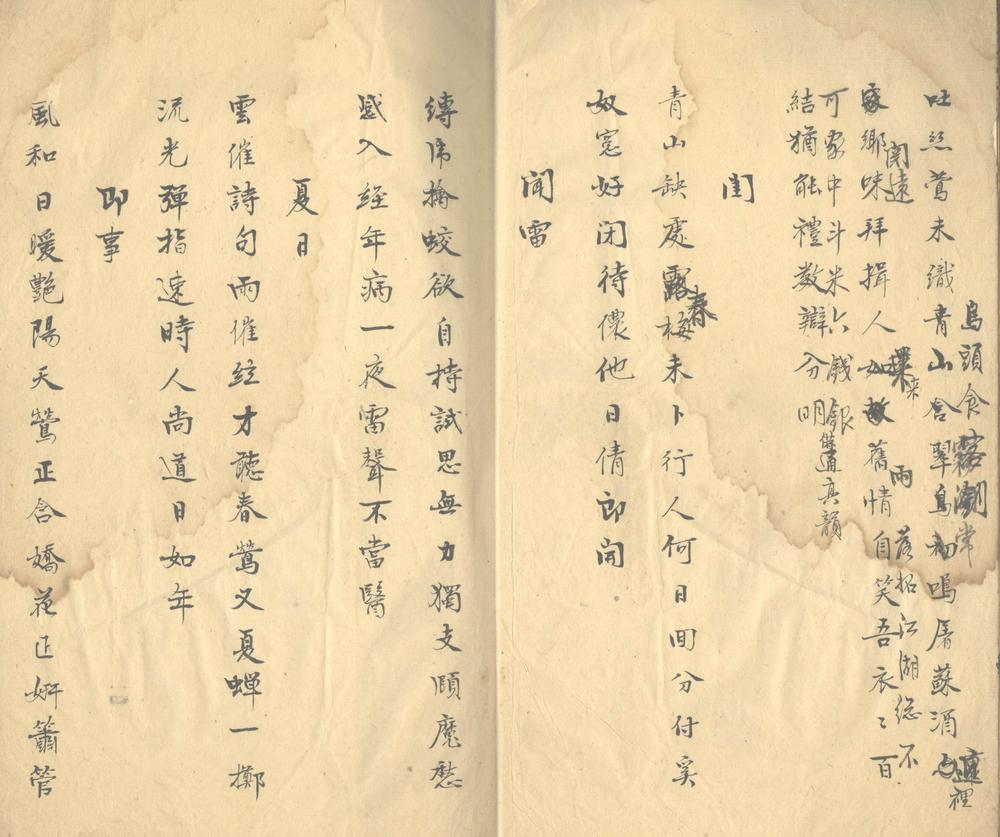 吐丝鶯未織青山含翠鳥初鳴屠蘇酒
烏頭食常
裡
鄉味拜揖人舊情自笑吾衣〻百
閨遠
來
雨
落拓江湖總不
可家中斗米六餞銀
結猶能禮数辯分明
真韻
閨
青山缺處露梅未卜行人何日回分付奚
春
奴窓好闭待儂他日倩郎開
聞雷
縛席擒蛟欲自持試思無力獨支頤魔愁
感入経年病一夜雷聲不當醫
夏日
雲催詩句雨催絃才聽春鶯又夏蟬一擲
流光彈指速時人尚道日如年
即事
風和日暖艷陽天鶯正含嬌花正妍簫管